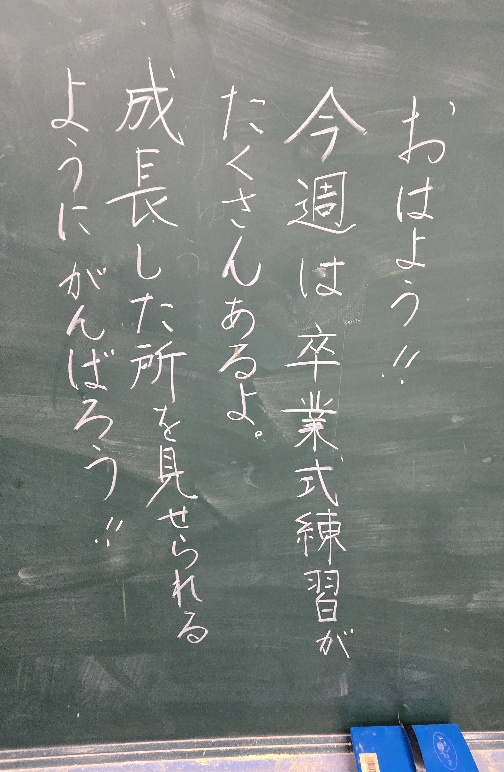 おはよう!!
今週は卒業式練習が
たくさんあるよ。
成長した所を見せられる
ようにがんばろう!!